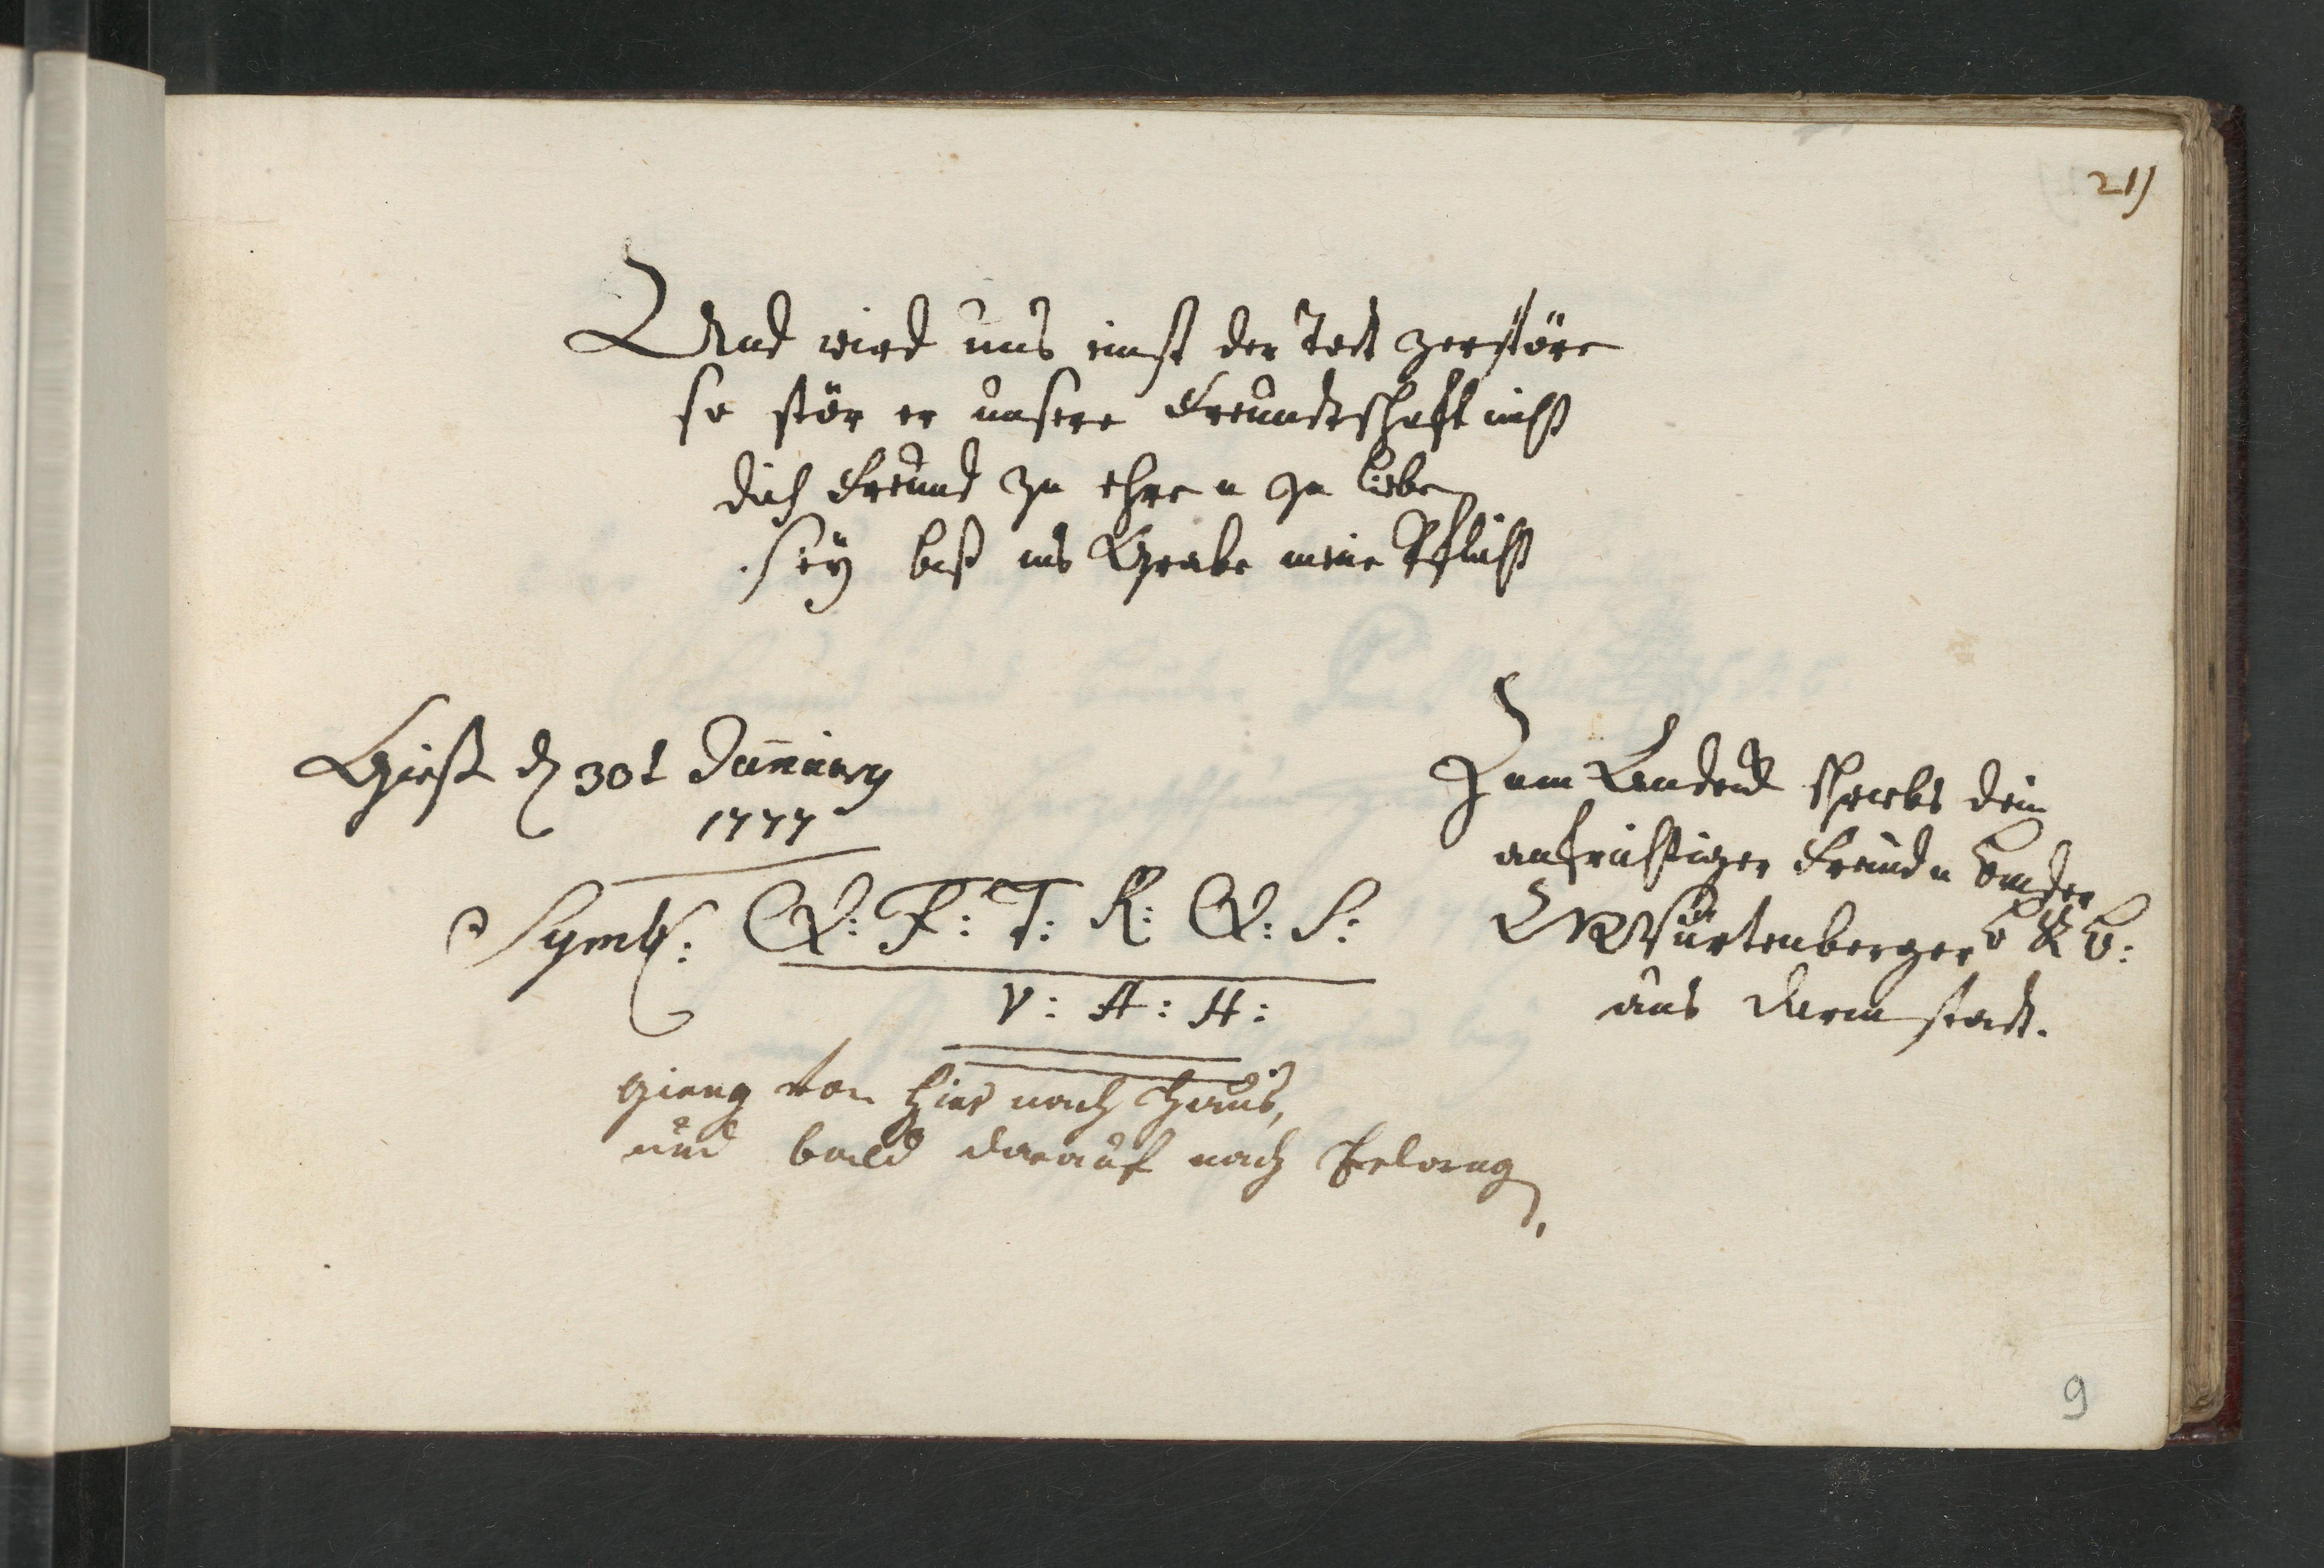 21)
Und wird uns einst der Todt zerstöre
so stör er unsere Freundtschaft nicht
dich Freund zu ehre u zu liebe
sey biß ins Grabe meine Pflicht
Gieß d 30t Januarÿ
1777
Symb: Q: F: T: R: Q: S:
V: A: H:
Zum Andend schriebs dein
aufrichtiger Freund u Bruder
Würtenberger
aus Darmstadt.
gieng von hier nach Haus,
und bald darauf nach Erlang
9